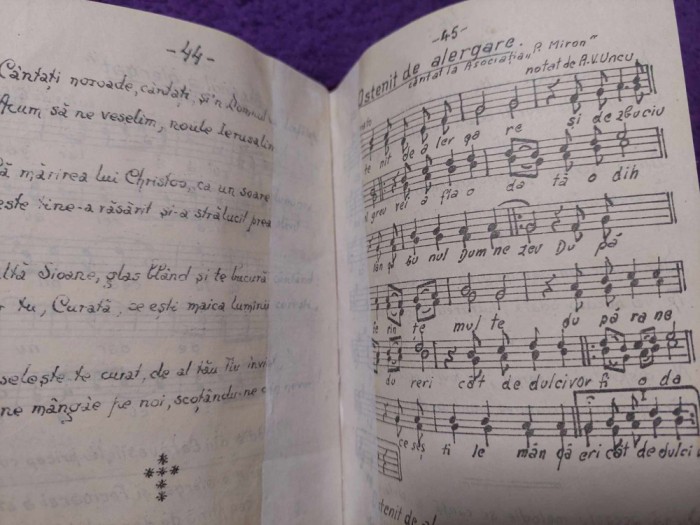 -44-
Cântați noroade, cântați, și'n
Acum să ne veselim, noule Ierusalim
mărirea lui Christos, ca un soare
tine-a răsărit și-a strălucit prea
Sioane, glas blând și te bucură
tu, Curată, ce ești maica luminii
te curat, de al tău Fiu
ne mângâe pe noi, scoțându-ne
-45-
Ostenit de alergare.
cântat la Asociația „P. Miron”
notat de A.V. Uncu
te nit de a ler ga re și de zbuciu
greu rei a fla o da tă o dih
bu nul Dum ne zeu Du pă
te mul te du pă ra ne
du reri cât de dulci vor fi o da
ce ses ti le mân gâ eri cât de dulci
stenit de